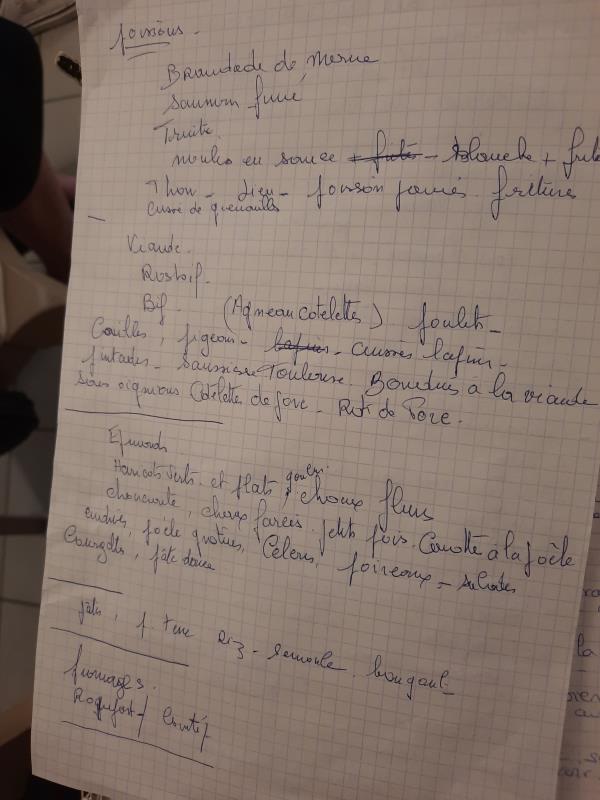 poissons.
Brandade de Morue
Saumon fumé
Truite.
moules en sauce + frites - blanche + frite
Thon - Lieu - poisson panés. fritures
Cuisse de grenouilles
Viande.
Rosbif.
Bif. (Agneau cotelettes) poulet -
Cailles, pigeon - lapin - cuisses lapin -
pintades - Saucisse Toulouse. Boudins a la viande
sans oignons Cotelettes de porc - Roti de Porc.
Epinards
Haricots verts - et plats,
choucroute, choux farcis. petits pois. Carotte à la poele
choux fleurs
endives, Céleri, poireaux -
Courgettes,
pates, p. terre Riz - semoule.
fromages.
Roquefort / Comté /